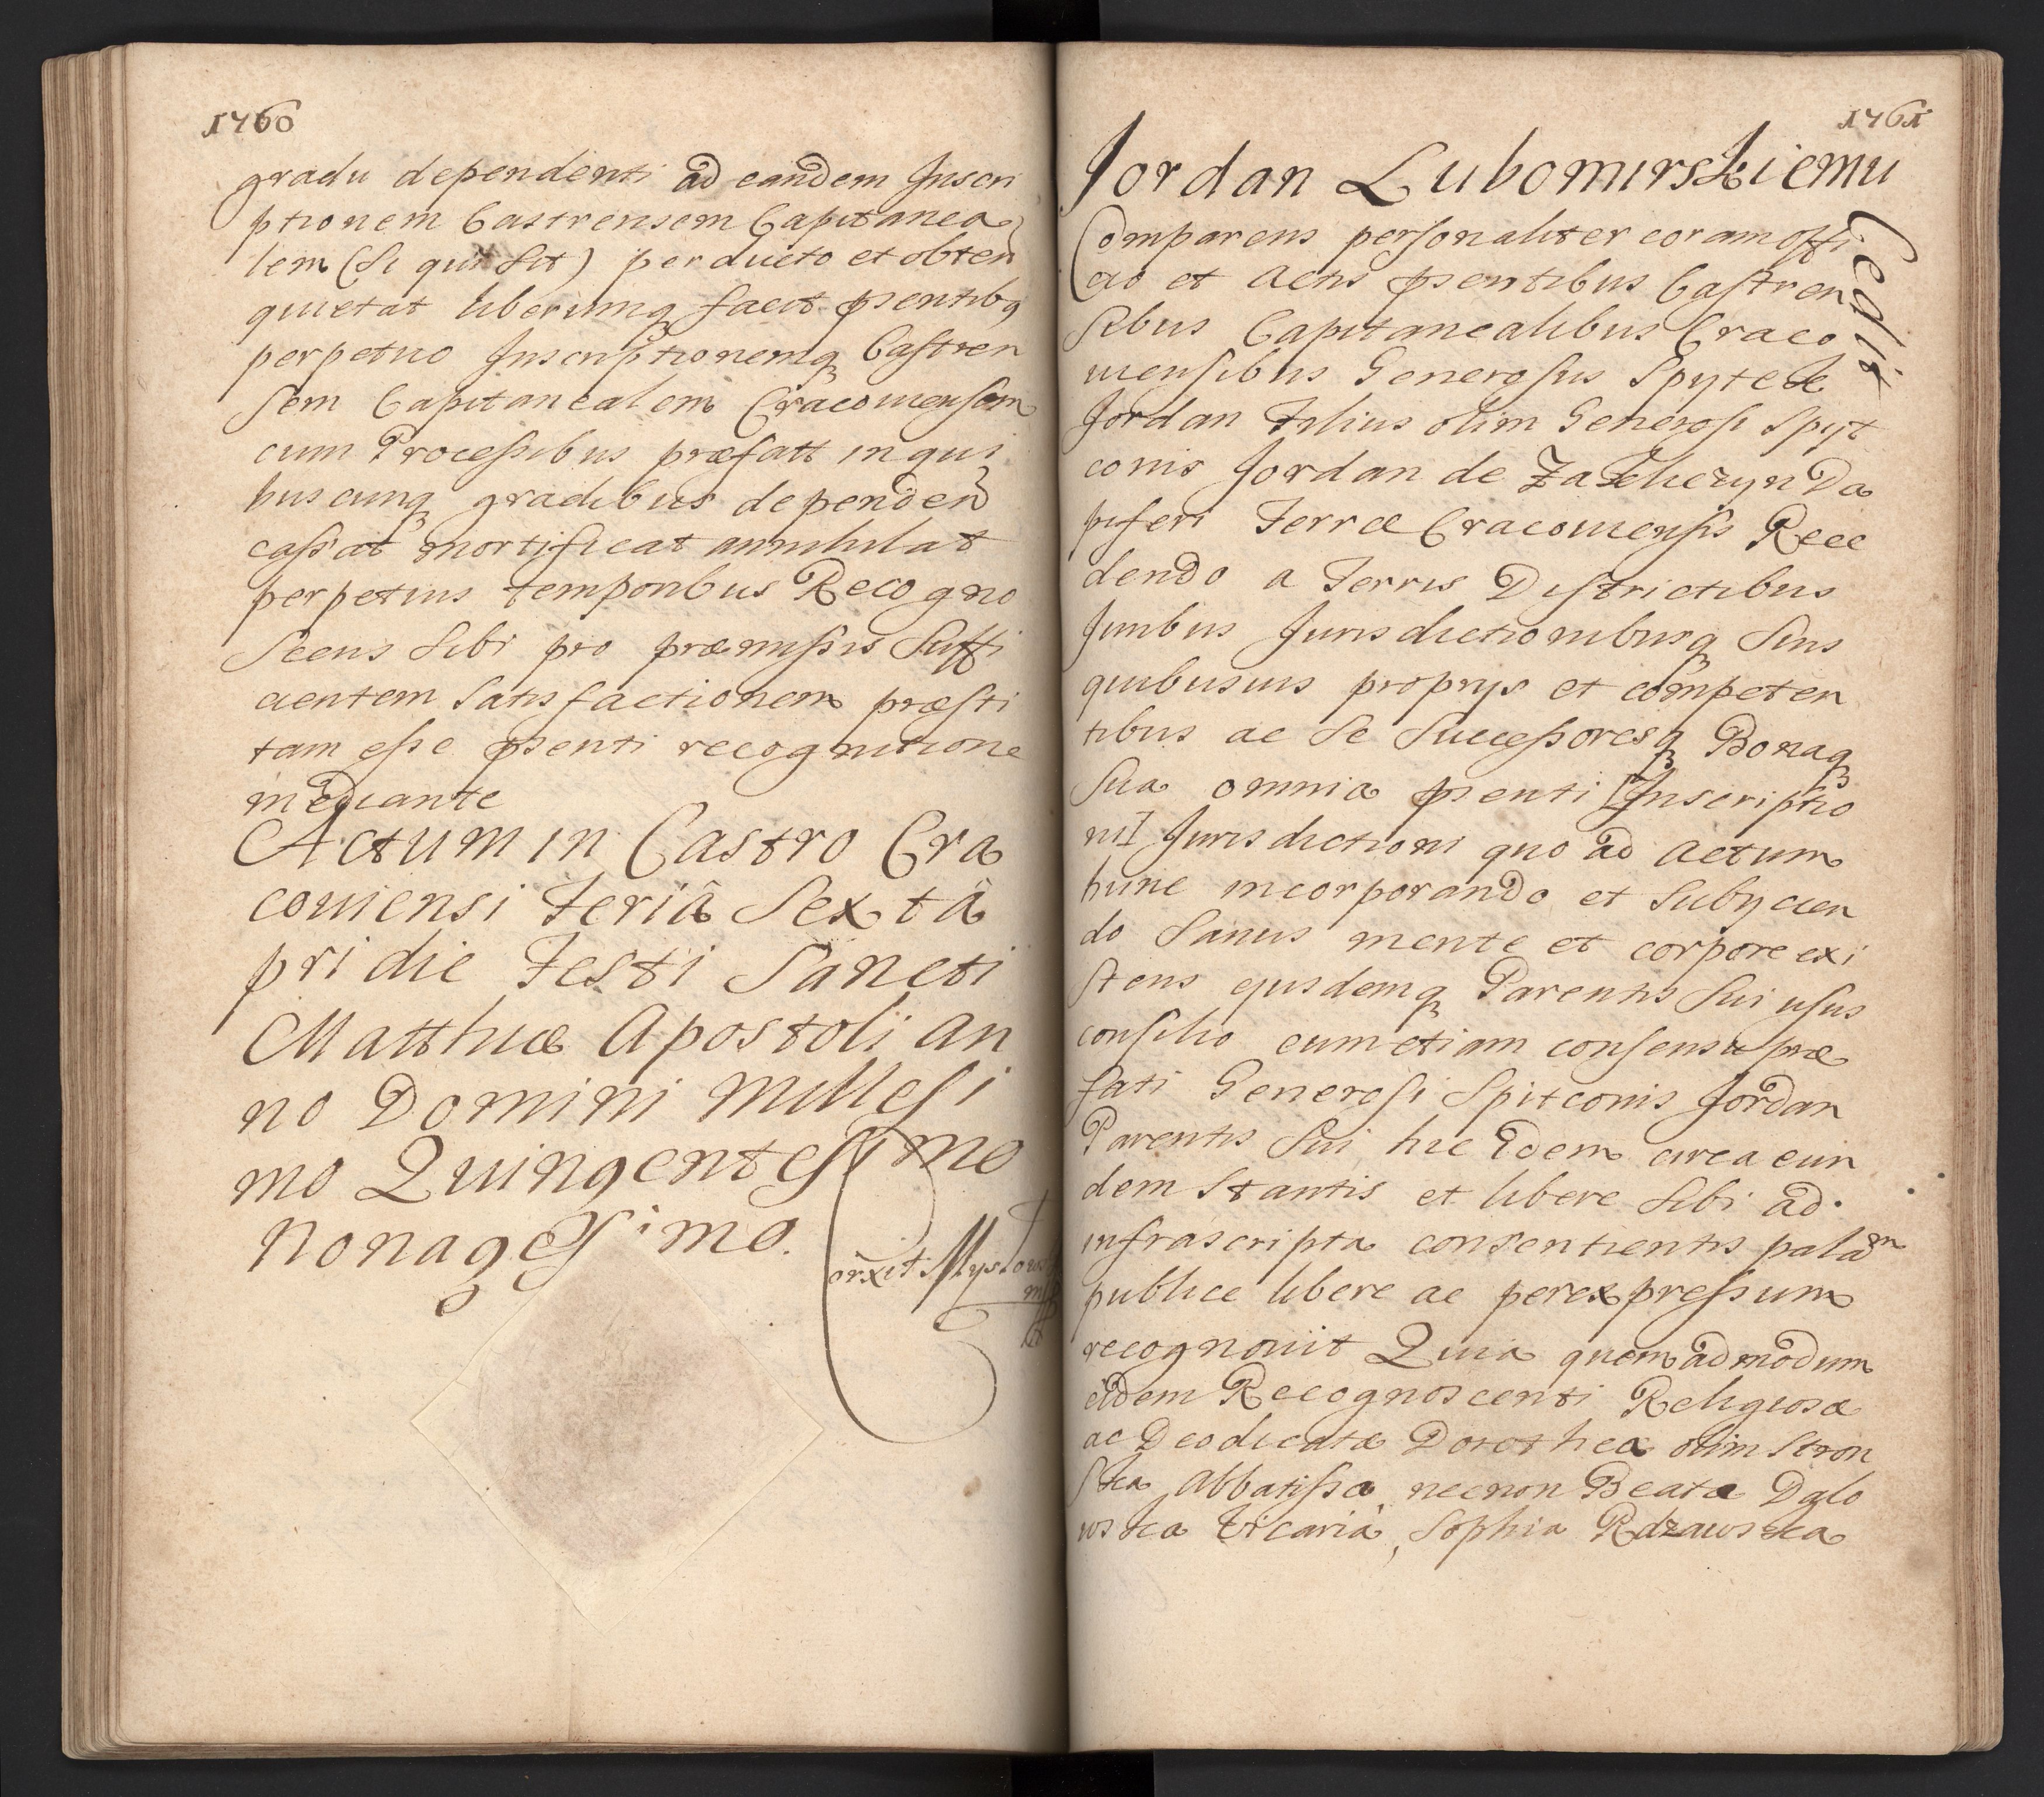 1760
gradu dependenti ad eandem Inscri
ptionem Castrensem Capitanea
lem (Si quis sit) perducto et obten
quietat liberumq facit psentibq
perpetuo Inscriptionemq Castren
sem Capitanealem Cracouiensem
cum Processibus præfatt in qui
buscunq gradibus dependen
cassat mortificat annihilat
perpetuis temporibus Recogno
scens sibi pro præmissis Suffi
cientem Satisfactionem præsti
tam esse psenti recognitione
mediante
Actum in Castro Cra
couiensi Feriâ Sextâ
pridie Festi Sancti
Matthiæ Apostoli An
no Domini Millesi
mo Quingentesimo
nonagesimo.
Corxit Myslows
1761
Jordan Lubomirskiemu
Cedit
Comparens personaliter coram offi
cio et Actis psentibus Castren
sibus Capitanealibus Craco
uiensibus Generosus Spytek
Jordan Filius olim Generosi Spyt
conis Jordan de Zakliczyn Da
piferi Terræ Cracouiensis Rece
dendo a Terris Districtibus
Juribus Jurisdictionibusq Suis
quibusuis proprys et competen
tibus ac Se Successoresq Bonaq
Sua omnia psenti [Inscriptio
ni] Jurisdictioni quo ad actum
hunc incorporando et Subycien
do Sanus mente et corpore exi
stens ejusdemq Parentis Sui usus
consilio cum etiam consensu præ
fati Generosi Spitconis Jordan
Parentis Sui hic idem circa eun
dem Stantis et libere Sibi ad
infrascripta consentientis palam
publice libere ac per expressum
recognouit Quia quemadmodum
eidem Recognoscenti Religiosæ
ac Deodicatæ Dorothea olim Stron
ska Abbatissa, necnon Beata Dglo
wska Vicaria, Sophia Rdzawska